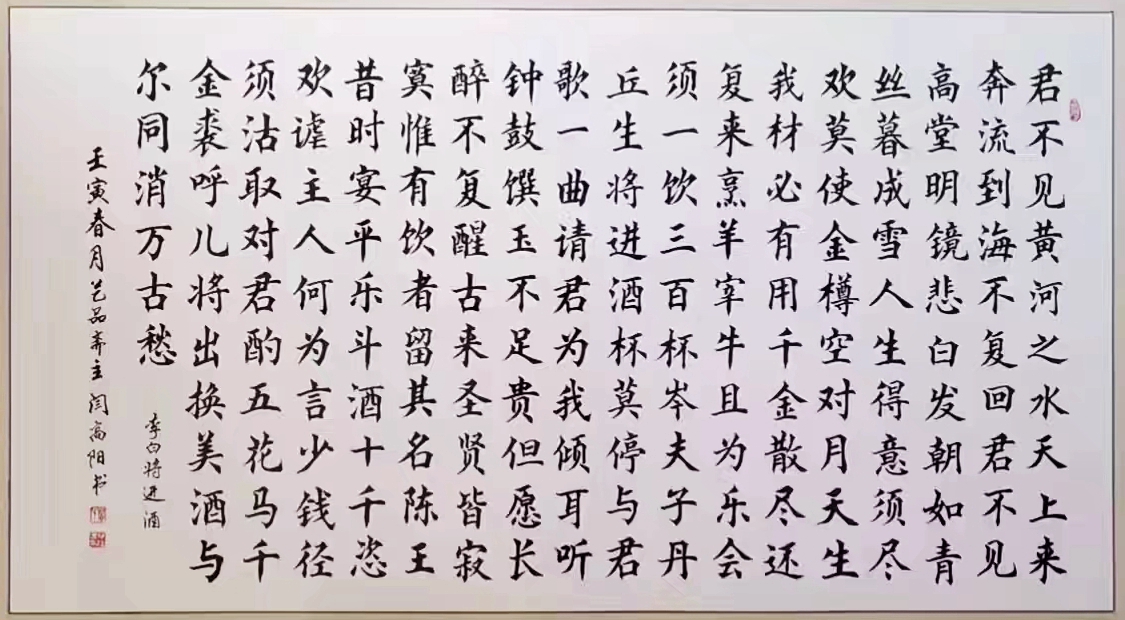 君不见黄河之水天上来
奔流到海不复回君不见
高堂明镜悲白发朝如青
丝暮成雪人生得意须尽
欢莫使金樽空对月天生
我材必有用千金散尽还
复来烹羊宰牛且为乐会
须一饮三百杯岑夫子丹
丘生将进酒杯莫停与君
歌一曲请君为我倾耳听
钟鼓馔玉不足贵但愿长
醉不复醒古来圣贤皆寂
寞惟有饮者留其名陈王
昔时宴平乐斗酒十千恣
欢谑主人何为言少钱径
须沽取对君酌五花马千
金裘呼儿将出换美酒与
尔同消万古愁
李白将进酒
壬寅春月艺品斋主闫高阳书